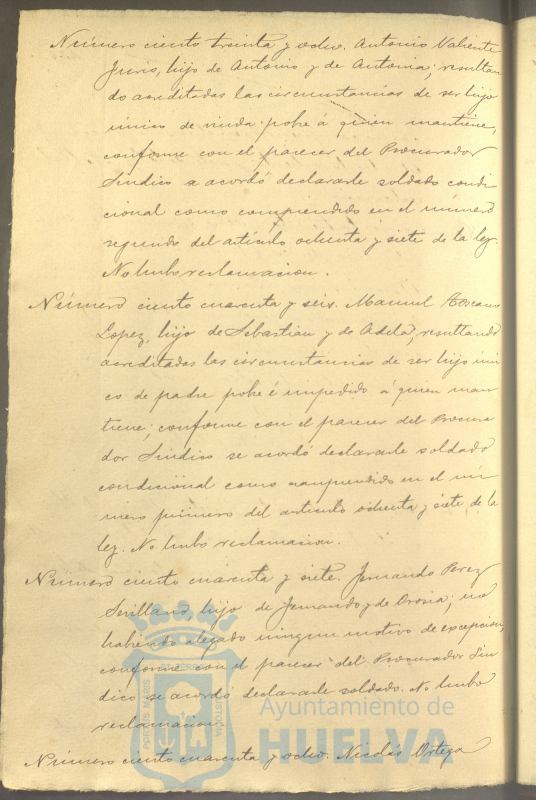 Número ciento treinta y ocho. Antonio Valiente
Juris, hijo de Antonio y de Antonia; resultan
do acreditadas las circunstancias de ser hijo
único de viuda pobre á quien mantiene,
conforme con el parecer del Procurador
Síndico a acordó declararle soldado condi
cional como comprendido en el número
segundo del artículo ochenta y siete de la ley.
No hubo reclamacion.
Número ciento cuarenta y seis. Manuel Toscano
Lopez, hijo de Sebastian y de Adela, resultando
acreditadas las circunstancias de ser hijo úni
co de padre pobre é impedido á quien man
tiene; conforme con el parecer del Procura
dor Síndico se acordó declararle soldado
condicional como comprendido en el nú
mero primero del artículo ochenta y siete de la
ley. No hubo reclamacion.
Número ciento cuarenta y siete. Fernando Perez
Sevillano, hijo de Fernando y de Orosia; no
habiendo alegado ningun motivo de excepcion,
conforme con el parecer del Procurador Sín
dico se acordó declararle soldado. No hubo
reclamacion.
Número ciento cuarenta y ocho. Nicolás Ortega
PORTUS MARIS
CUSTODIA
Ayuntamiento de
HUELVA